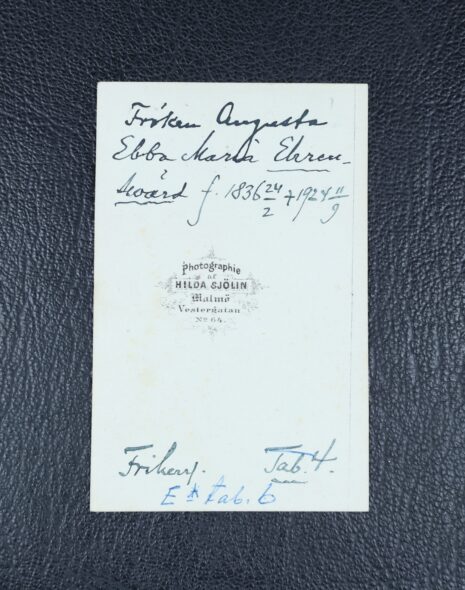 Fröken Augusta
Ebba Maria Ehren-
svärd f. 1836 24/2 + 1924 11/9
Photographie
af
HILDA SJÖLIN
Malmö
Vestergatan
No 64.
Friherrl. Tab. 4.
Tab. 6